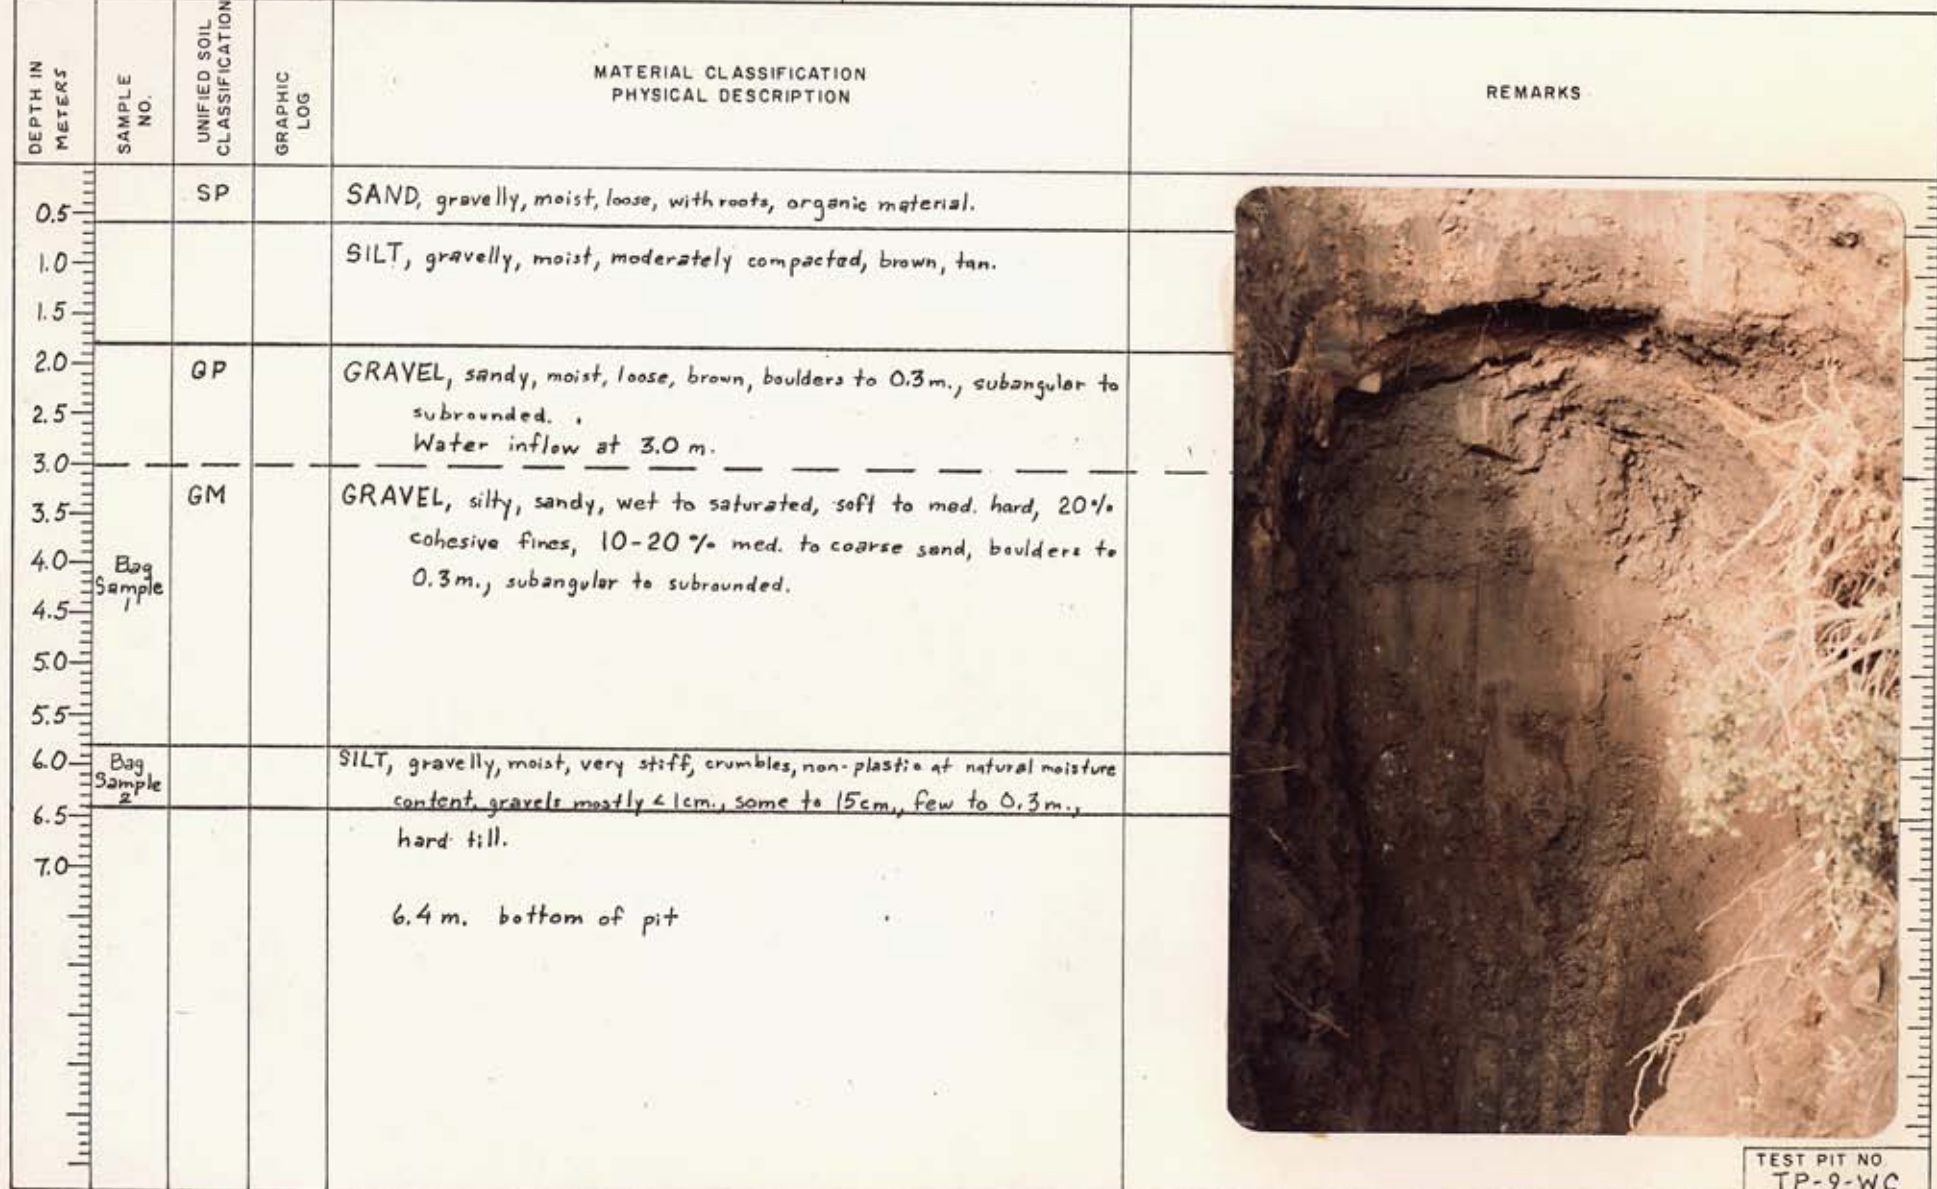 DEPTH IN
METERS
SAMPLE
NO.
UNIFIED SOIL
CLASSIFICATION
GRAPHIC
LOG
MATERIAL CLASSIFICATION
PHYSICAL DESCRIPTION
REMARKS
0.5
SP
SAND, gravelly, moist, loose, with roots, organic material.
1.0
SILT, gravelly, moist, moderately compacted, brown, tan.
1.5
2.0
GP
GRAVEL, sandy, moist, loose, brown, boulders to 0.3m., subangular to
2.5
subrounded.
Water inflow at 3.0 m.
3.0
GM
GRAVEL, silty, sandy, wet to saturated, soft to med. hard, 20%
3.5
cohesive fines, 10-20% med. to coarse sand, boulders to
4.0
Bag
Sample
1
0.3m., subangular to subrounded.
4.5
5.0
5.5
6.0
Bag
Sample
2
SILT, gravelly, moist, very stiff, crumbles, non-plastic at natural moisture
content, gravels mostly < 1cm., some to 15cm., few to 0.3m.,
6.5
hard till.
7.0
6.4 m. bottom of pit
TEST PIT NO.
TP-9-WC